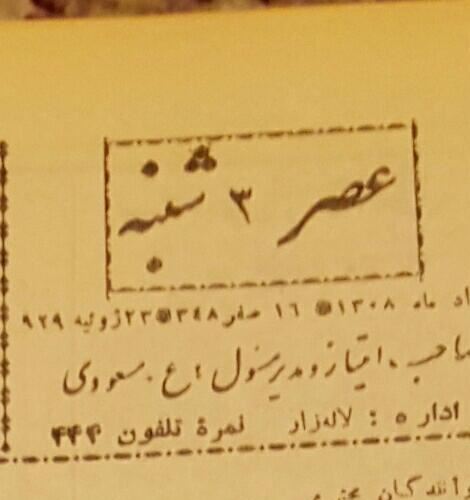 عصر ۳ شنبه
ماه ۱۳۰۸ ۱۶ صفر ۳۴۸ ۲۳ ژوئیه ۹۲۹
امتیاز و مدیر مسئول : ع . مسعودی
اداره : لاله‌زار نمرة تلفون ۴۴۴